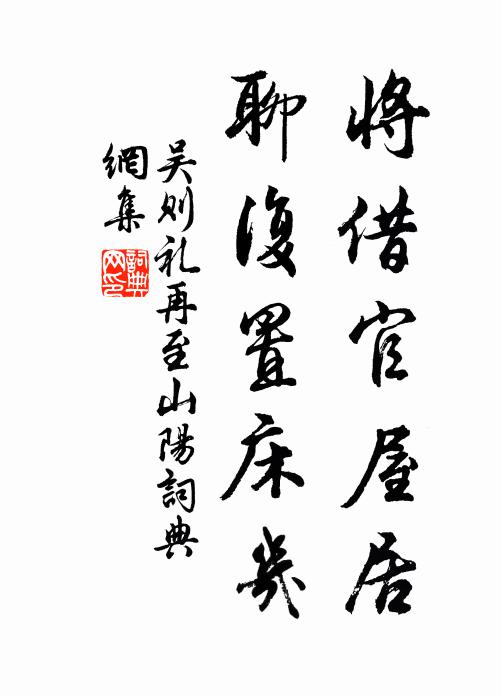 將借官屋居
聊復置床几
吴则礼再至山陽詞典
網集
詞典网印